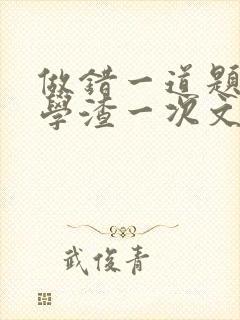 做錯一道題
學渣一次文
武俊青